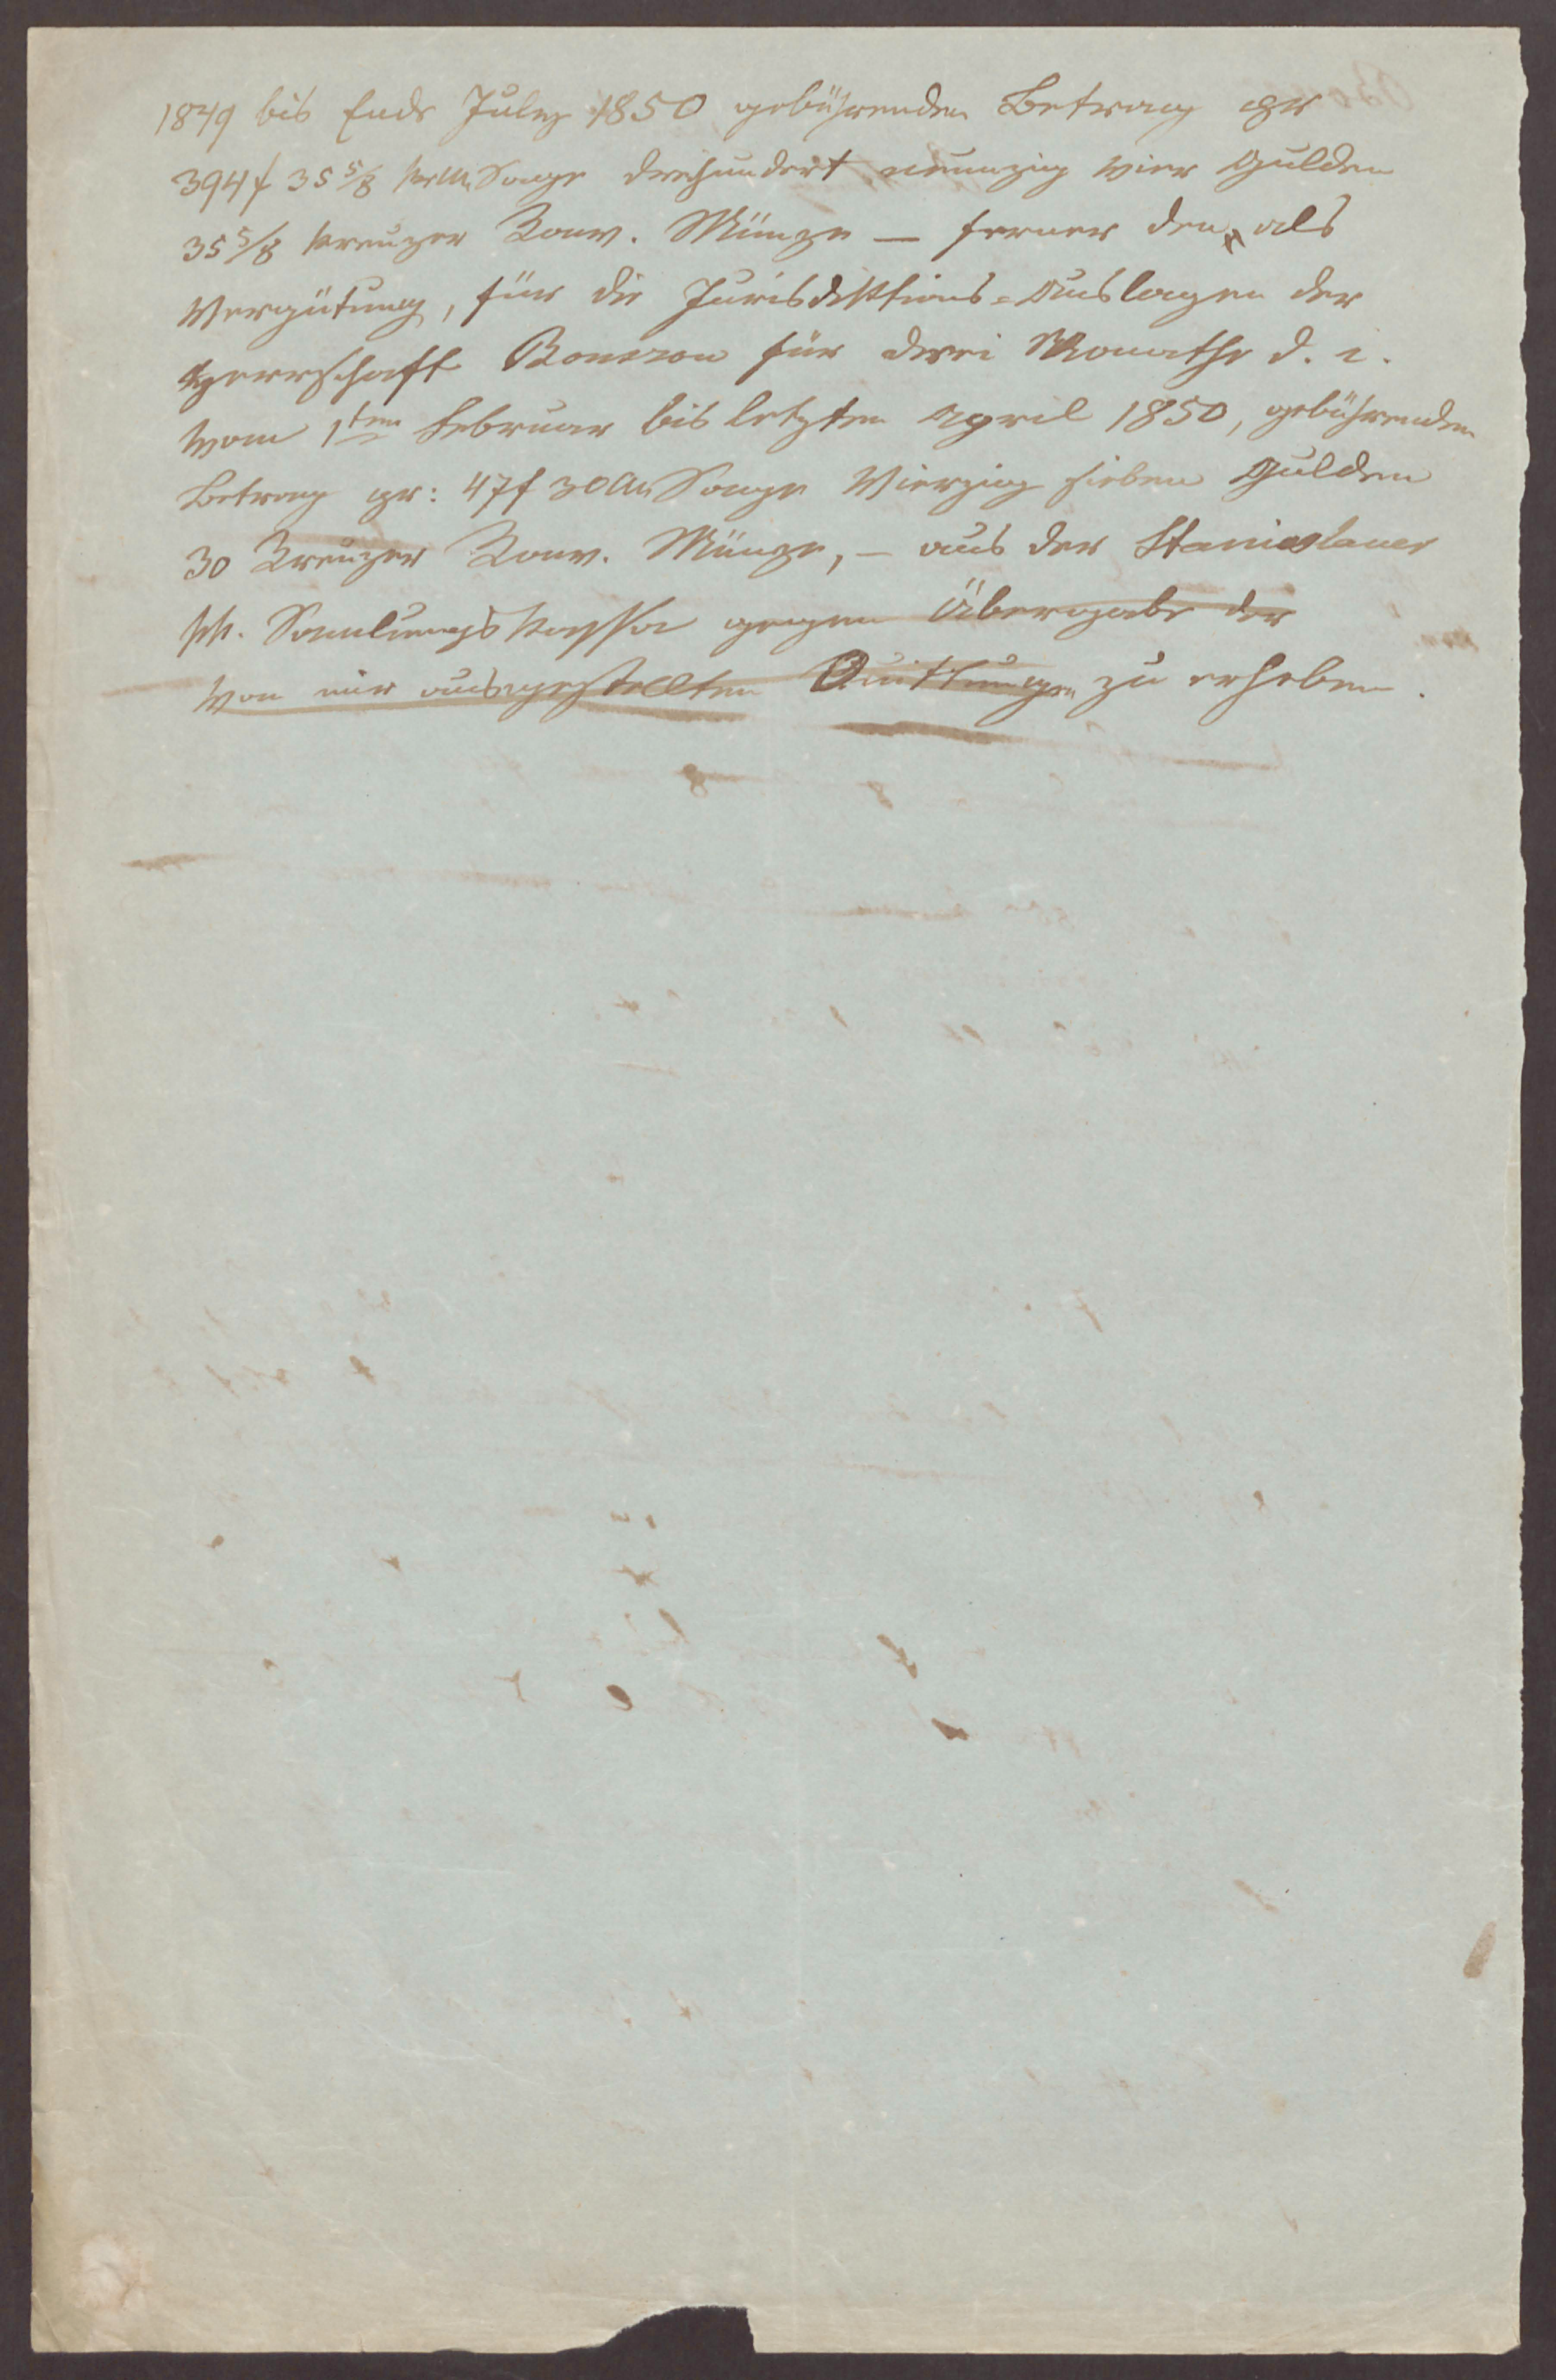 1849 bis Ende July 1850 gebührenden Betrag pr
394 f 35 5/8 xr CM Sage dreihundert neunzig vier Gulden
35 5/8 Kreuzer Konv. Münze — ferner den, als
Vergütung, für die Jurisdiktions-Auslagen der
Herrschaft für drei Monathe d. i.
vom 1ten Februar bis letzten April 1850, gebührenden
Betrag pr: 47 f 30 CM Sage Vierzig sieben Gulden
30 Kreuzer Konv. Münze, — aus der Stanislauer
kk. Samlungskassa gegen Übergabe der
von mir ausgestellten Quittungen zu erheben.